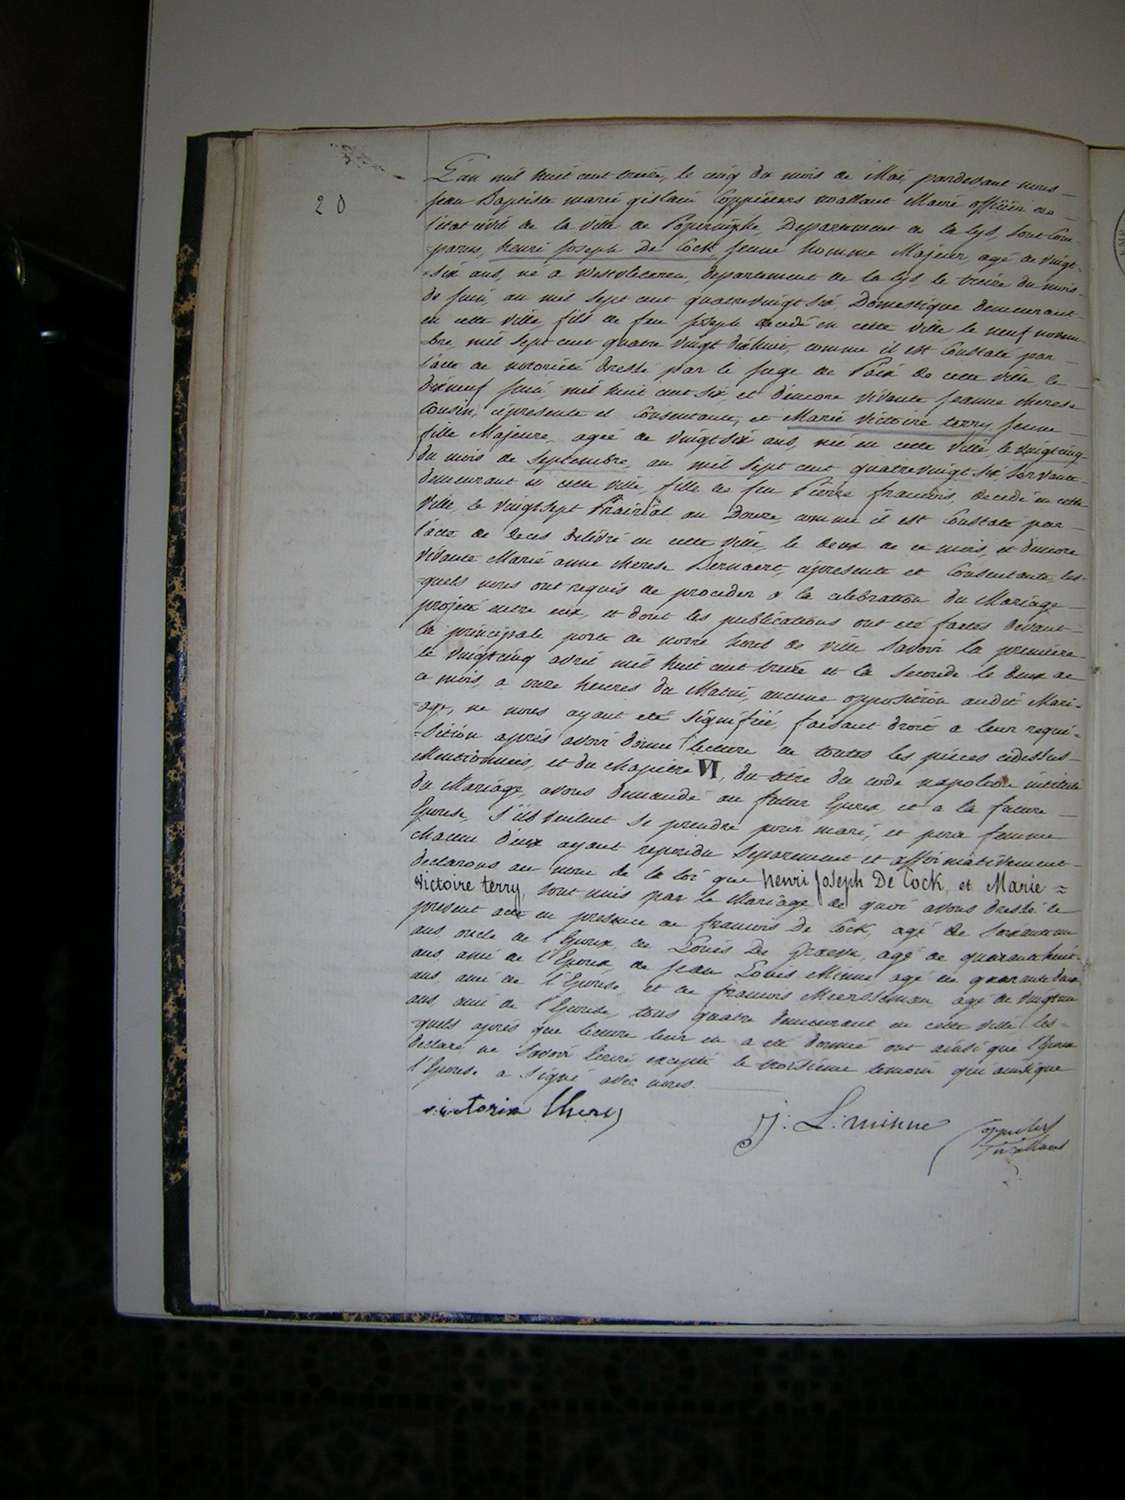 20
L'an mil huit cent treize, le cinq du mois de Mai pardevant nous
jean Baptiste marie gislain Coppieters wallant Maire officier de
l'état civil de la ville de Poperinghe, Departement de la lys, sont Com-
parus, henri Joseph De Cock jeune homme Majeur, agé de vingt-
six ans, né a westvleteren, departement de la lys, le treize du mois
de juin, an mil sept cent quatrevingt six, Domestique demeurant
en cette ville, fils de feu joseph decedé en cette ville le neuf novem
bre mil sept cent quatre vingt dixhuit, comme il est Constaté par
l'acte de notorieté dressé par le juge de Paix de cette ville le
dixneuf juin mil huit cent six, et d'encore vivante jeanne therese
Cousin, cipresente et Consentante, et Marie victoire terry jeune
fille Majeure, agée de vingt six ans, née en cette ville, le vingt cinq
du mois de Septembre, an mil sept cent quatrevingt six Servante
demeurant en cette ville, fille de feu Pierre francois, decedé en cette
ville, le vingt sept Prairial an Douze, comme il est Constaté par
l'acte de deces delivré en cette ville, le deux de ce mois, et d'encore
vivante Marie anne therese Bernaert, cipresente et Consentante, les-
quels nous ont requis de proceder a la celebration du Mariage
projetté entre eux, et dont les publications ont eté faites devant
la principale porte de notre hotel de ville savoir la premiere
le vingt cinq avril mil huit cent treize et la seconde le deux de
ce mois, a onze heures du Matin, aucune opposition audit Mari-
age, ne nous ayant eté signifiée, faisant droit a leur requi-
sition après avoir donné lecture de toutes les pièces cidessus
Mentionnées, et du chapitre VI, du titre du code napoleon intitulé
du Mariage, avons demandé au futur Epoux et a la future
Epouse, s'ils veulent se prendre pour mari, et pour femme
chacun d'eux ayant repondu separement et affirmativement
declarons au nom de la loi que henri Joseph De Cock, et Marie =
victoire terry, sont unis par le Mariage de quoi avons dressé le
present acte en presence de francois De Cock, agé de
ans oncle de l'Epoux, de Louis De agé de quarante huit
ans, ami de l'Epoux de jean Louis Minne agé de quarante deux
ans, ami de l'Epouse, et de francois Mersseman agé de vingt un
ans ami de l'Epouse, tous quatre demeurant en cette ville les
quels après que lecture leur en a eté donnée ont ainsi que l'Epoux
declaré ne savoir ecrire excepté le troisième temoin qui ainsi que
l'Epouse a signé avec nous.
victoria thery
J: L: minne
Coppieters
wallant